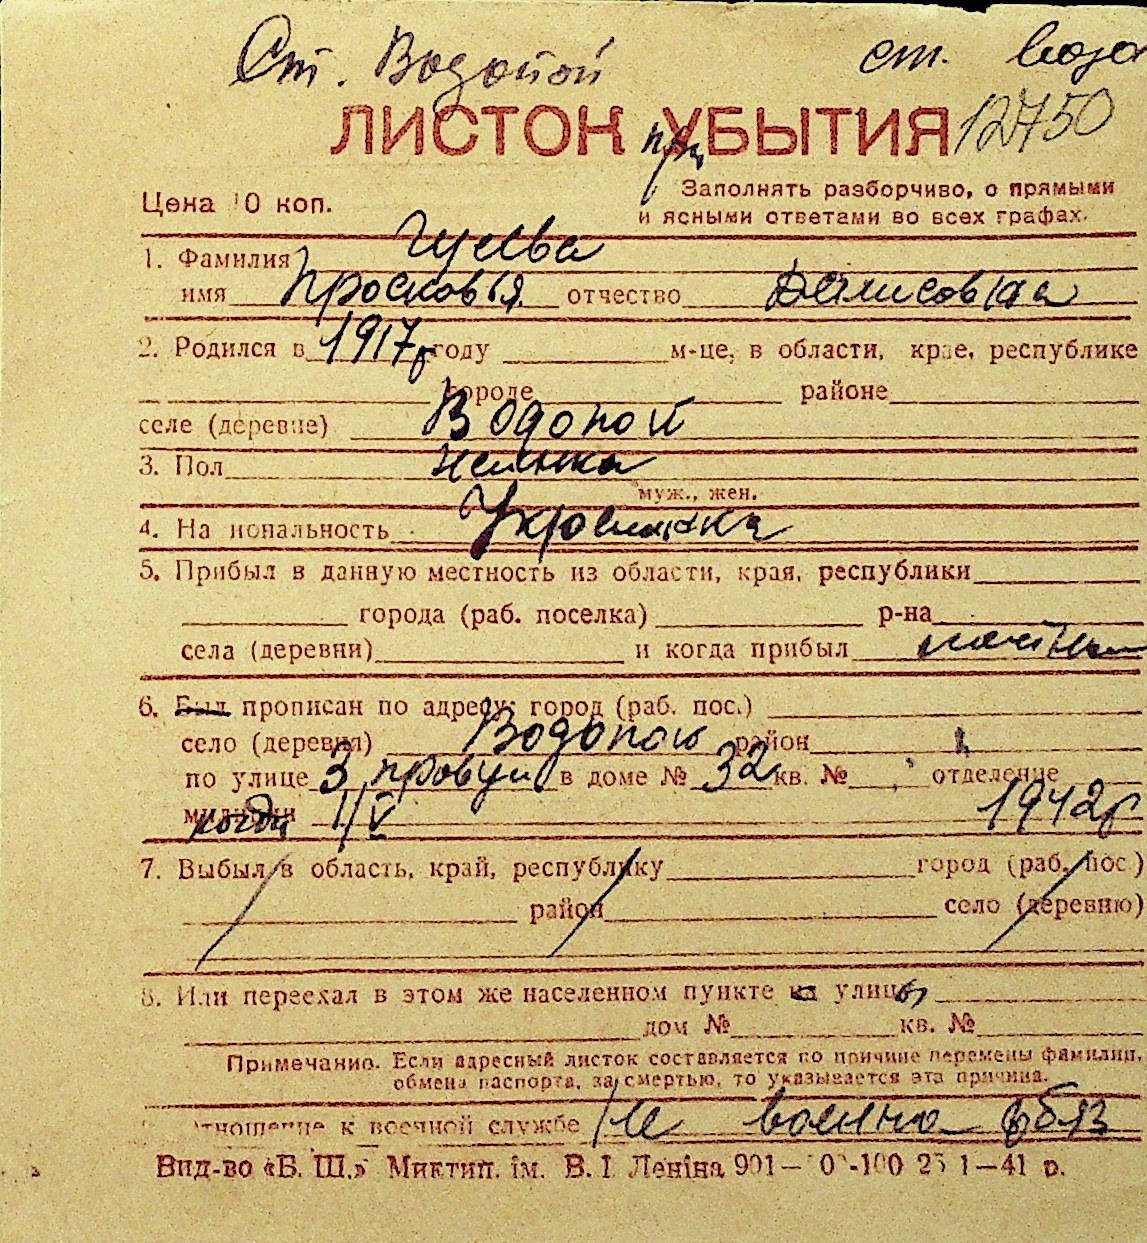 Ст. Водопой ст. Водо
ЛИСТОК при УБЫТИЯ 12750
Цена 10 коп.
Заполнять разборчиво, о прямыми
и ясными ответами во всех графах.
1. Фамилия
имя Просковья отчество Денисовна
2. Родился в 1917 г году м-це, в области, крае, республике
городе районе
селе (деревне) Водопой
3. Пол женска
муж., жен.
4. На иональность Украинка
5. Прибыл в данную местность из области, края, республики
города (раб. поселка) р-на
села (деревни) и когда прибыл
6. Был прописан по адресу: город (раб. пос.)
село (деревня) Водопою район
по улице 3 провул в доме № 32 кв. № отделение
милиции когда 1/V 1942 г
7. Выбыл в область, край, республику город (раб. пос.)
район село (деревню)
8. Или переехал в этом же населенном пункте на улицы
дом № кв. №
Примечание. Если адресный листок составляется по причине перемены фамилии,
обмена паспорта, за смертью, то указывается эта причина.
тношение к военной службе Не военно обяз
Вид-во «Б. Ш.» Миктип. ім. В. І Леніна 901— 1—41 р.